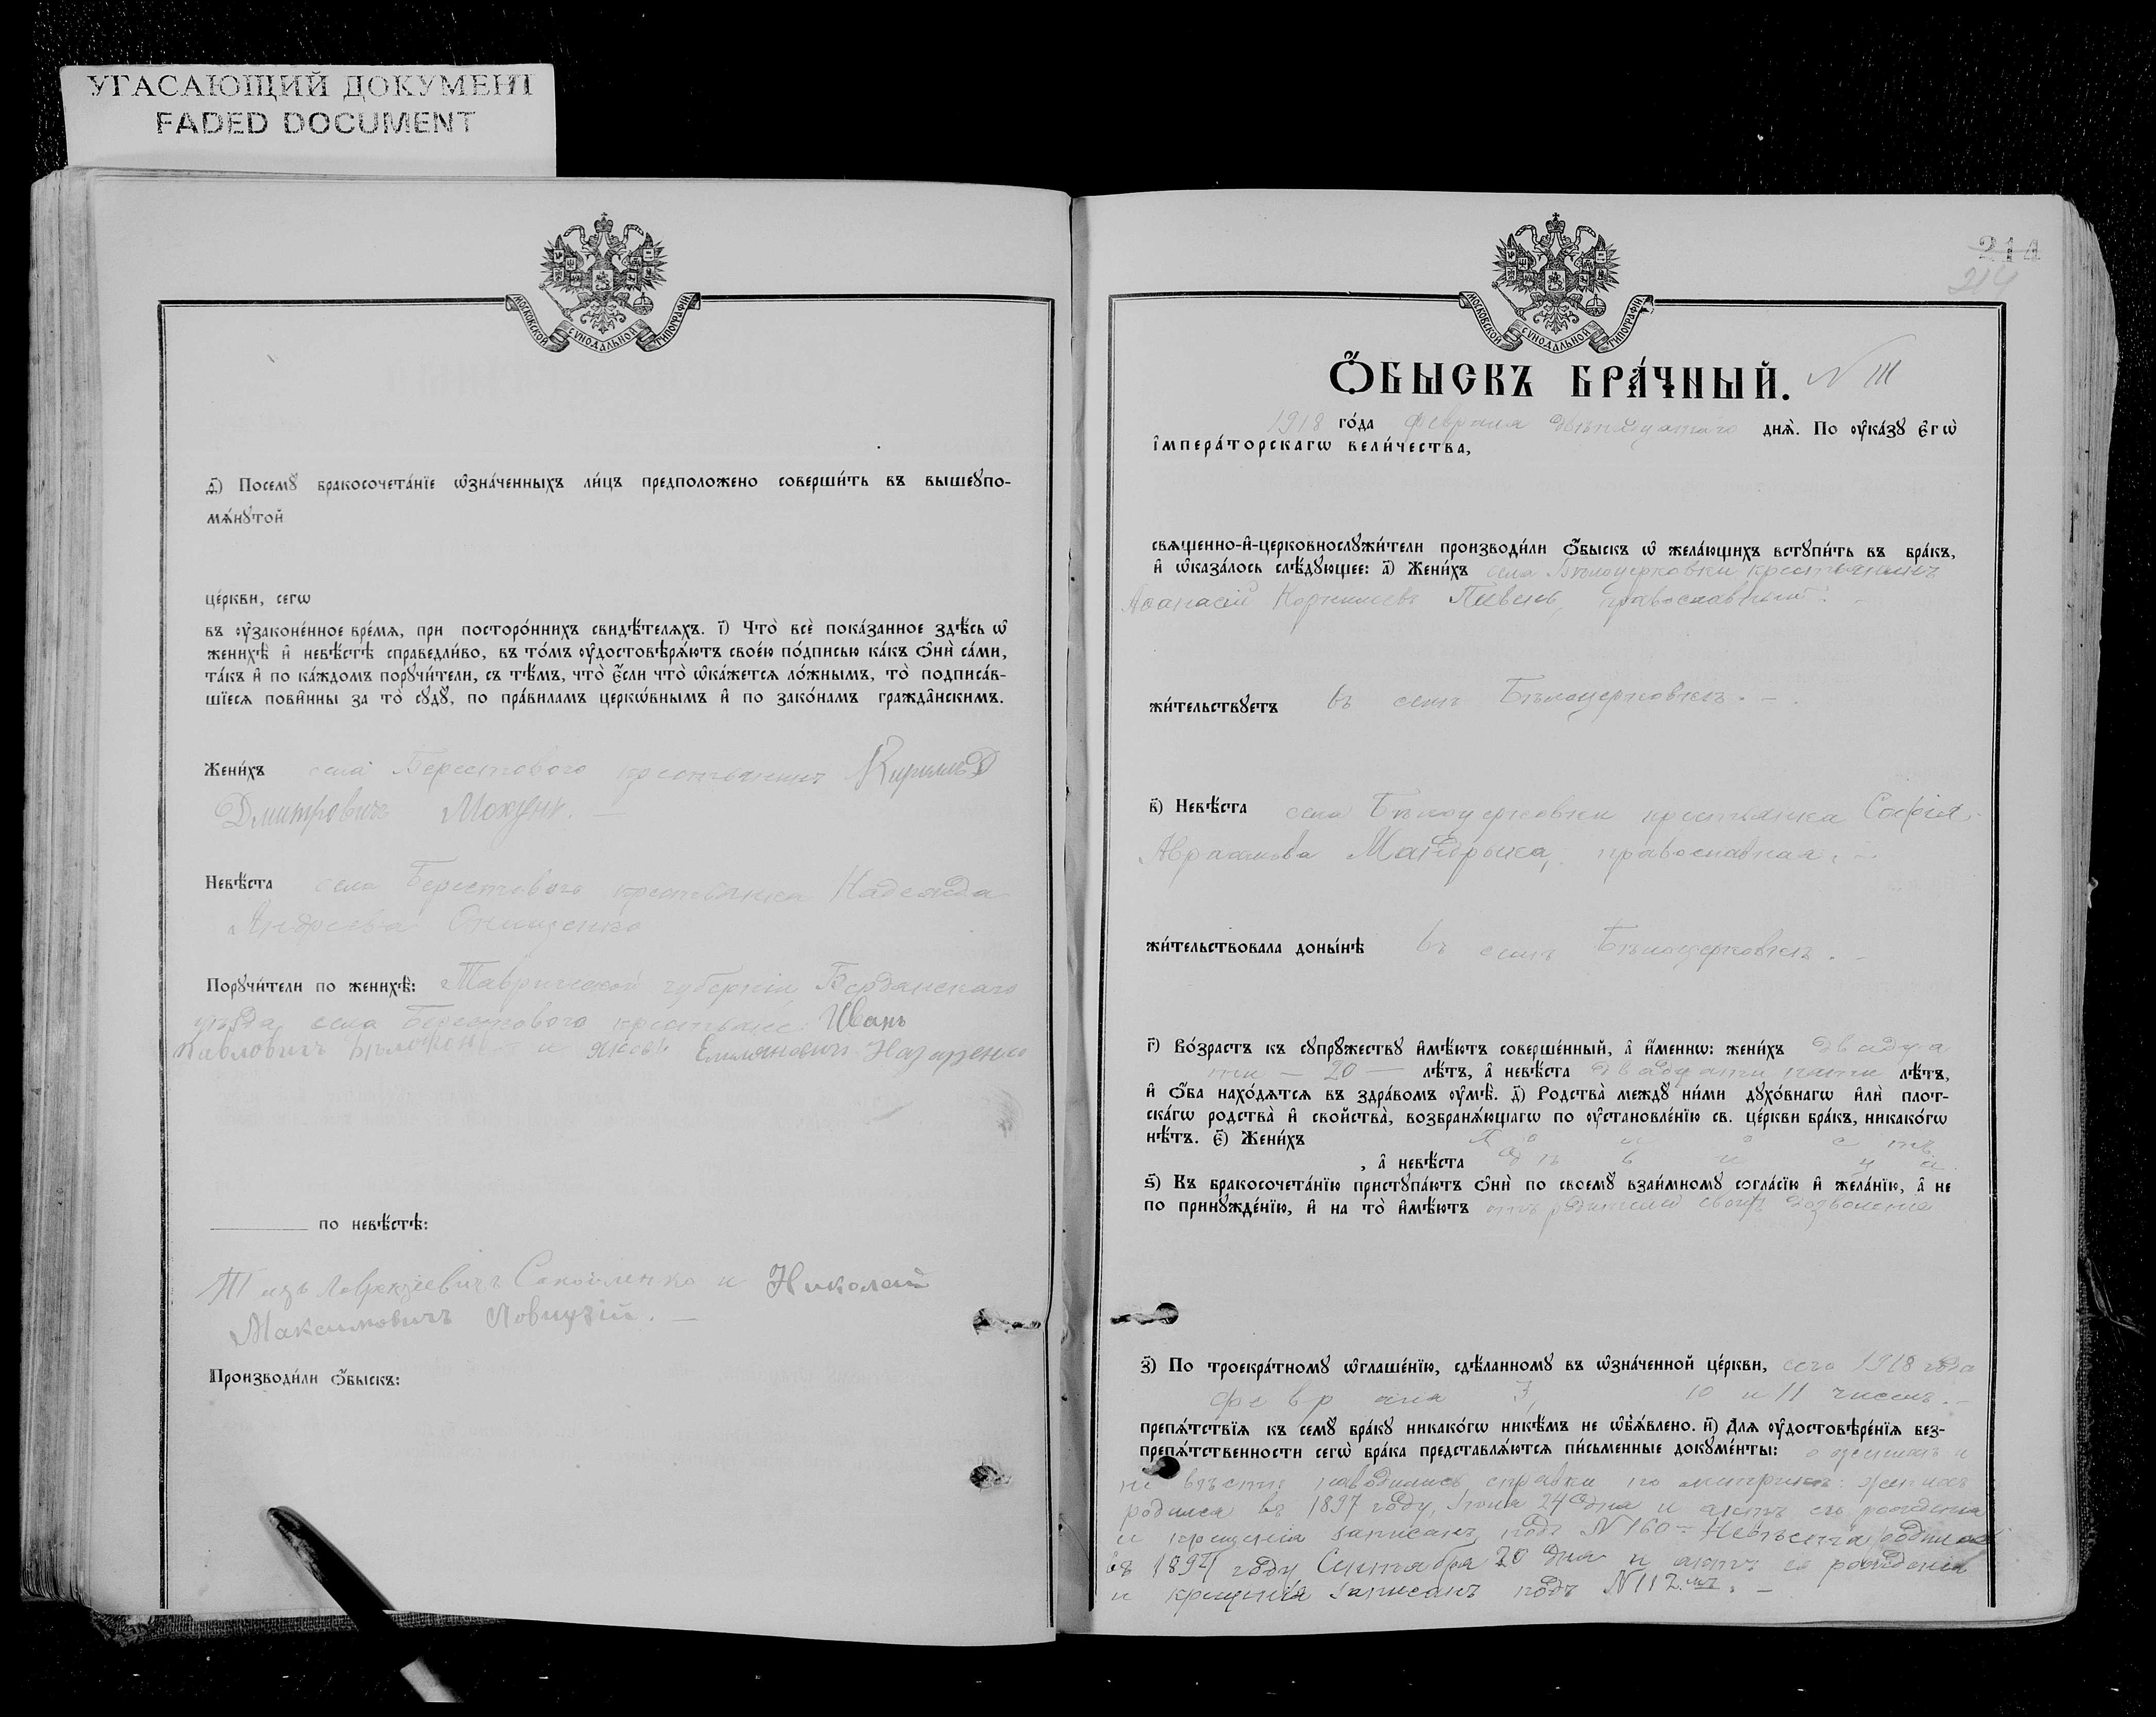 УГАСАЮЩИЙ ДОКУМЕНТ
FADED DOCUMENT
МОСКОВСКОЙ СѴНОДАЛЬНОЙ ТИПОГРАФІИ
д҃) Посемꙋ̀ бракосочета́нїе ѡ҆зна́ченныхъ ли́цъ предположено соверши́ть въ вышеꙋпо-
мѧ́нꙋтой
це́ркви, сегѡ̀
въ ᲂу҆законе́нное вре́мѧ, при посторо́ннихъ свидѣ́телѧхъ. і҃) Что̀ всѐ пока́занное здѣ́сь ѡ҆
женихѣ̀ и҆ невѣ́стѣ справедли́во, въ то́мъ ᲂу҆достовѣрѧ́ютъ свое́ю по́дписью ка́къ ѻ҆нѝ са́ми,
та́къ и҆ по ка́ждомъ порꙋчи́тели, съ тѣ́мъ, что̀ є҆́сли что̀ ѡ҆ка́жется ло́жнымъ, то̀ подписа́в-
шїеся пови́нны за то̀ сꙋдꙋ̀, по пра́виламъ церкѡ́внымъ и҆ по зако́намъ гражда̑нскимъ.
Жени́хъ села Берестового крестьянинъ Кириллъ
Дмитровичъ
Невѣ́ста села Берестового крестьянка Надежда
Андреева Онищенко
Порꙋчи́тели по женихѣ̀: Таврической губерніи Бердянскаго
уѣзда села Берестового крестьяне: Иванъ
Павловичъ Бѣлоконь и Яковъ Емельяновичъ Назаренко
по невѣ́стѣ:
и Николай
Максимовичъ
Производи́ли ѻ҆́быскъ:
214
214
МОСКОВСКОЙ СѴНОДАЛЬНОЙ ТИПОГРАФІИ
Ѻ҆́БЫСКЪ БРА́ЧНЫЙ. N 111
1918 го́да февраля двѣнадцатаго днѧ̀. По ᲂу҆ка́зꙋ є҆гѡ̀
і҆мпера́торскагѡ вели́чества,
свѧщенно-и҆-церковнослꙋжи́тели производи́ли ѻ҆́быскъ ѡ҆ жела́ющихъ встꙋпи́ть въ бра́къ,
и҆ ѡ҆каза́лось слѣ́дꙋющее: а҃) Жени́хъ села Бѣлоцерковки крестьянинъ
Аѳанасій Корнилиевъ Пивень, православный. —
жи́тельствꙋетъ въ селѣ Бѣлоцерковкѣ. —
в҃) Невѣ́ста села Бѣлоцерковки крестьянка Софія
Авраамова Мандрыка, православная. —
жи́тельствовала доны́нѣ въ селѣ Бѣлоцерковкѣ. —
г҃) Во́зрастъ къ сꙋпрꙋ́жествꙋ и҆мѣ́ютъ соверше́нный, а҆ и҆́меннѡ: жени́хъ двадца
ти — 20 — лѣ́тъ, а҆ невѣ́ста двадцати пяти лѣ́тъ,
и҆ ѻ҆́ба нахо́дѧтсѧ въ здра́вомъ ᲂу҆мѣ̀. д҃) Родства̀ междꙋ̀ ни́ми дꙋхо́внагѡ и҆лѝ плот-
ска́гѡ родства̀ и҆ свойства̀, возбранѧ́ющагѡ по ᲂу҆становле́нїю св. це́ркви бра́къ, никако́гѡ
нѣ́тъ. є҃) Жени́хъ холостъ
, а҆ невѣ́ста дѣвица.
ѕ҃) Къ бракосочета́нїю пристꙋпа́ютъ ѻ҆нѝ по своемꙋ̀ взаи́мномꙋ согла́сїю и҆ жела́нїю, а҆ не
по принꙋжде́нїю, и҆ на то̀ и҆мѣ́ютъ отъ родителей своихъ дозволение
з҃) По троекра́тномꙋ ѡ҆глаше́нїю, сдѣ́ланномꙋ въ ѡ҆зна́ченной це́ркви, сего 1918 года
февраля 3, 10 и 11 чиселъ. —
препѧ́тствїѧ къ семꙋ̀ бра́кꙋ никако́гѡ никѣ́мъ не ѡ҆бъѧ́влено. и҃) Длѧ ᲂу҆достовѣре́нїѧ без-
препѧ́тственности сегѡ̀ бра́ка представлѧ́ютсѧ пи́сьменные докꙋме́нты: о женихѣ и
невѣстѣ наводились справки по метрикѣ: женихъ
родился въ 1897 году, 24 дня и актъ его рожденія
и крещенія записанъ подъ N 160 = Невѣста родилась
въ году Сентября 20 дня и актъ ея рожденія
и крещенія записанъ подъ N 112 мъ. —